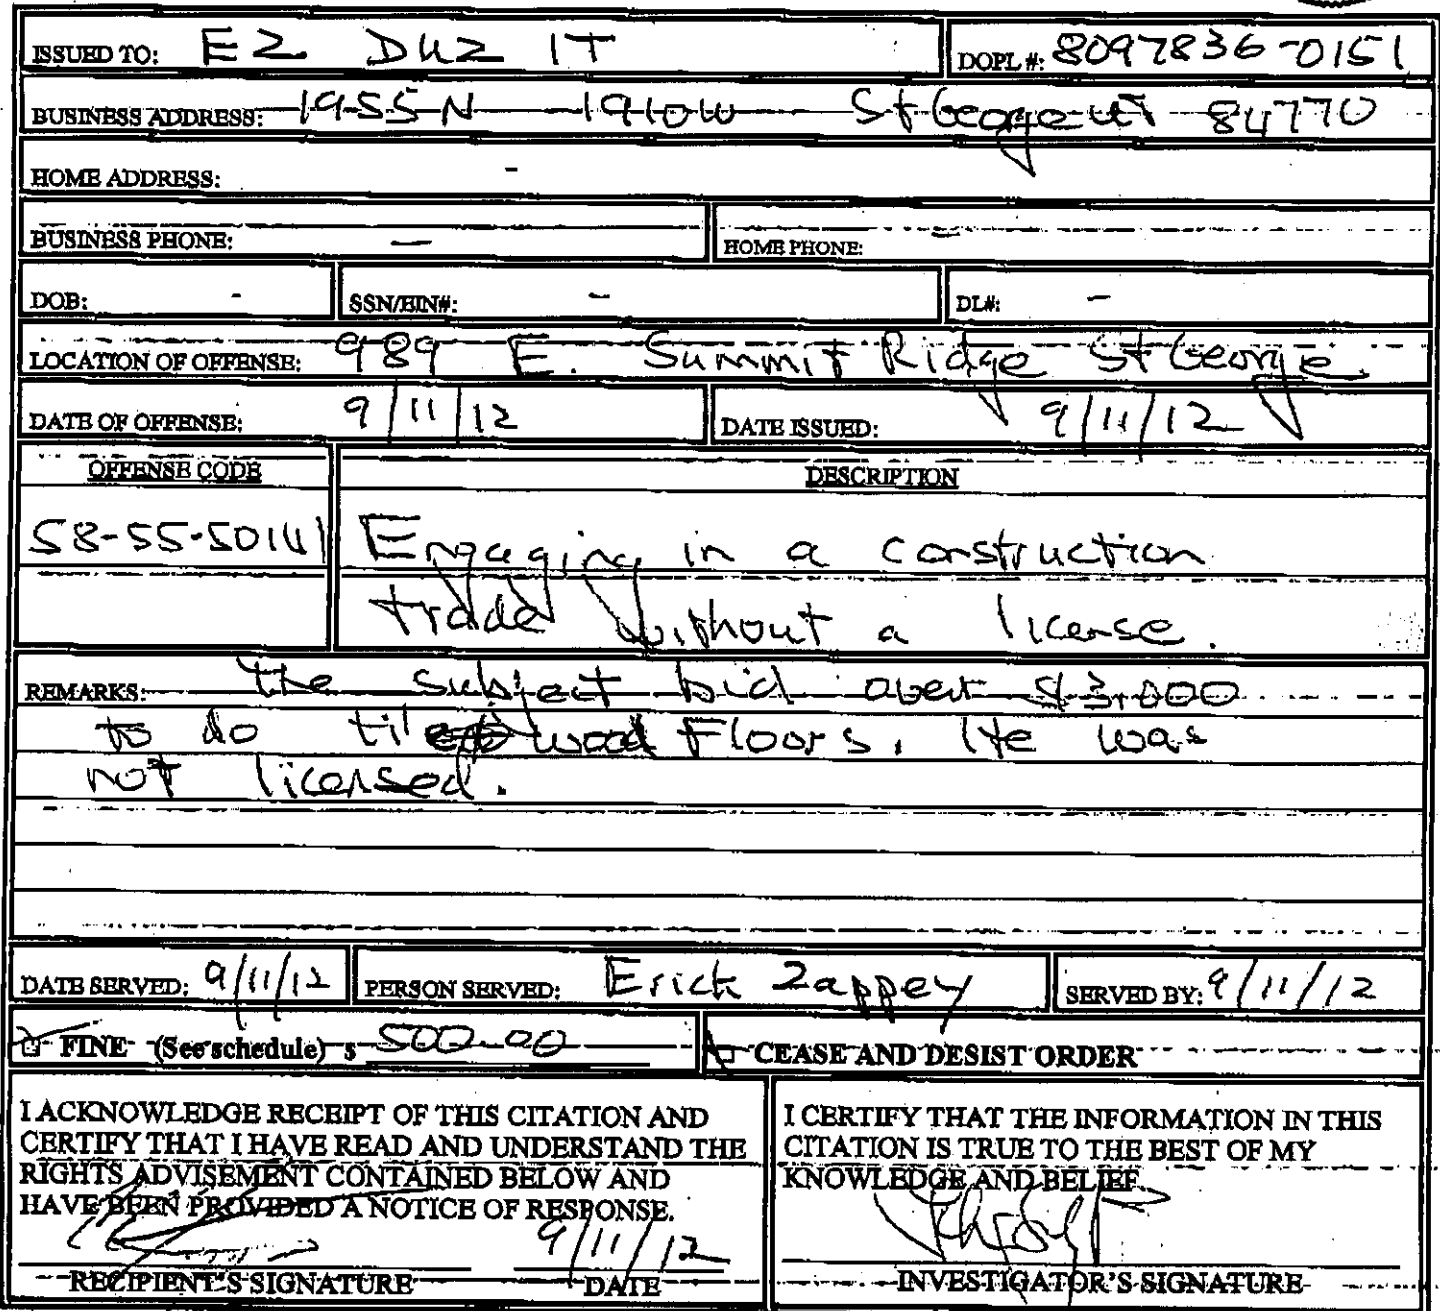 ISSUED TO: EZ DUZ IT DOPL #: 8097836-0151
BUSINESS ADDRESS: 1955 N 1910 W St George UT 84770
HOME ADDRESS: -
BUSINESS PHONE: - HOME PHONE: -
DOB: - SSN/EIN#: - DL#: -
LOCATION OF OFFENSE: 989 E. Summit Ridge St George
DATE OF OFFENSE: 9/11/12 DATE ISSUED: 9/11/12
OFFENSE CODE DESCRIPTION
58-55-501(1) Engaging in a construction
trade without a license.
REMARKS: the subject bid over $3,000
to do tile wood Floors. He was
not licensed.
DATE SERVED: 9/11/12 PERSON SERVED: Erick Zappey SERVED BY: 9/11/12
FINE (See schedule) $ 500.00 CEASE AND DESIST ORDER
I ACKNOWLEDGE RECEIPT OF THIS CITATION AND
CERTIFY THAT I HAVE READ AND UNDERSTAND THE
RIGHTS ADVISEMENT CONTAINED BELOW AND
HAVE BEEN PROVIDED A NOTICE OF RESPONSE.
9/11/12
RECIPIENT'S SIGNATURE DATE
I CERTIFY THAT THE INFORMATION IN THIS
CITATION IS TRUE TO THE BEST OF MY
KNOWLEDGE AND BELIEF.
INVESTIGATOR'S SIGNATURE